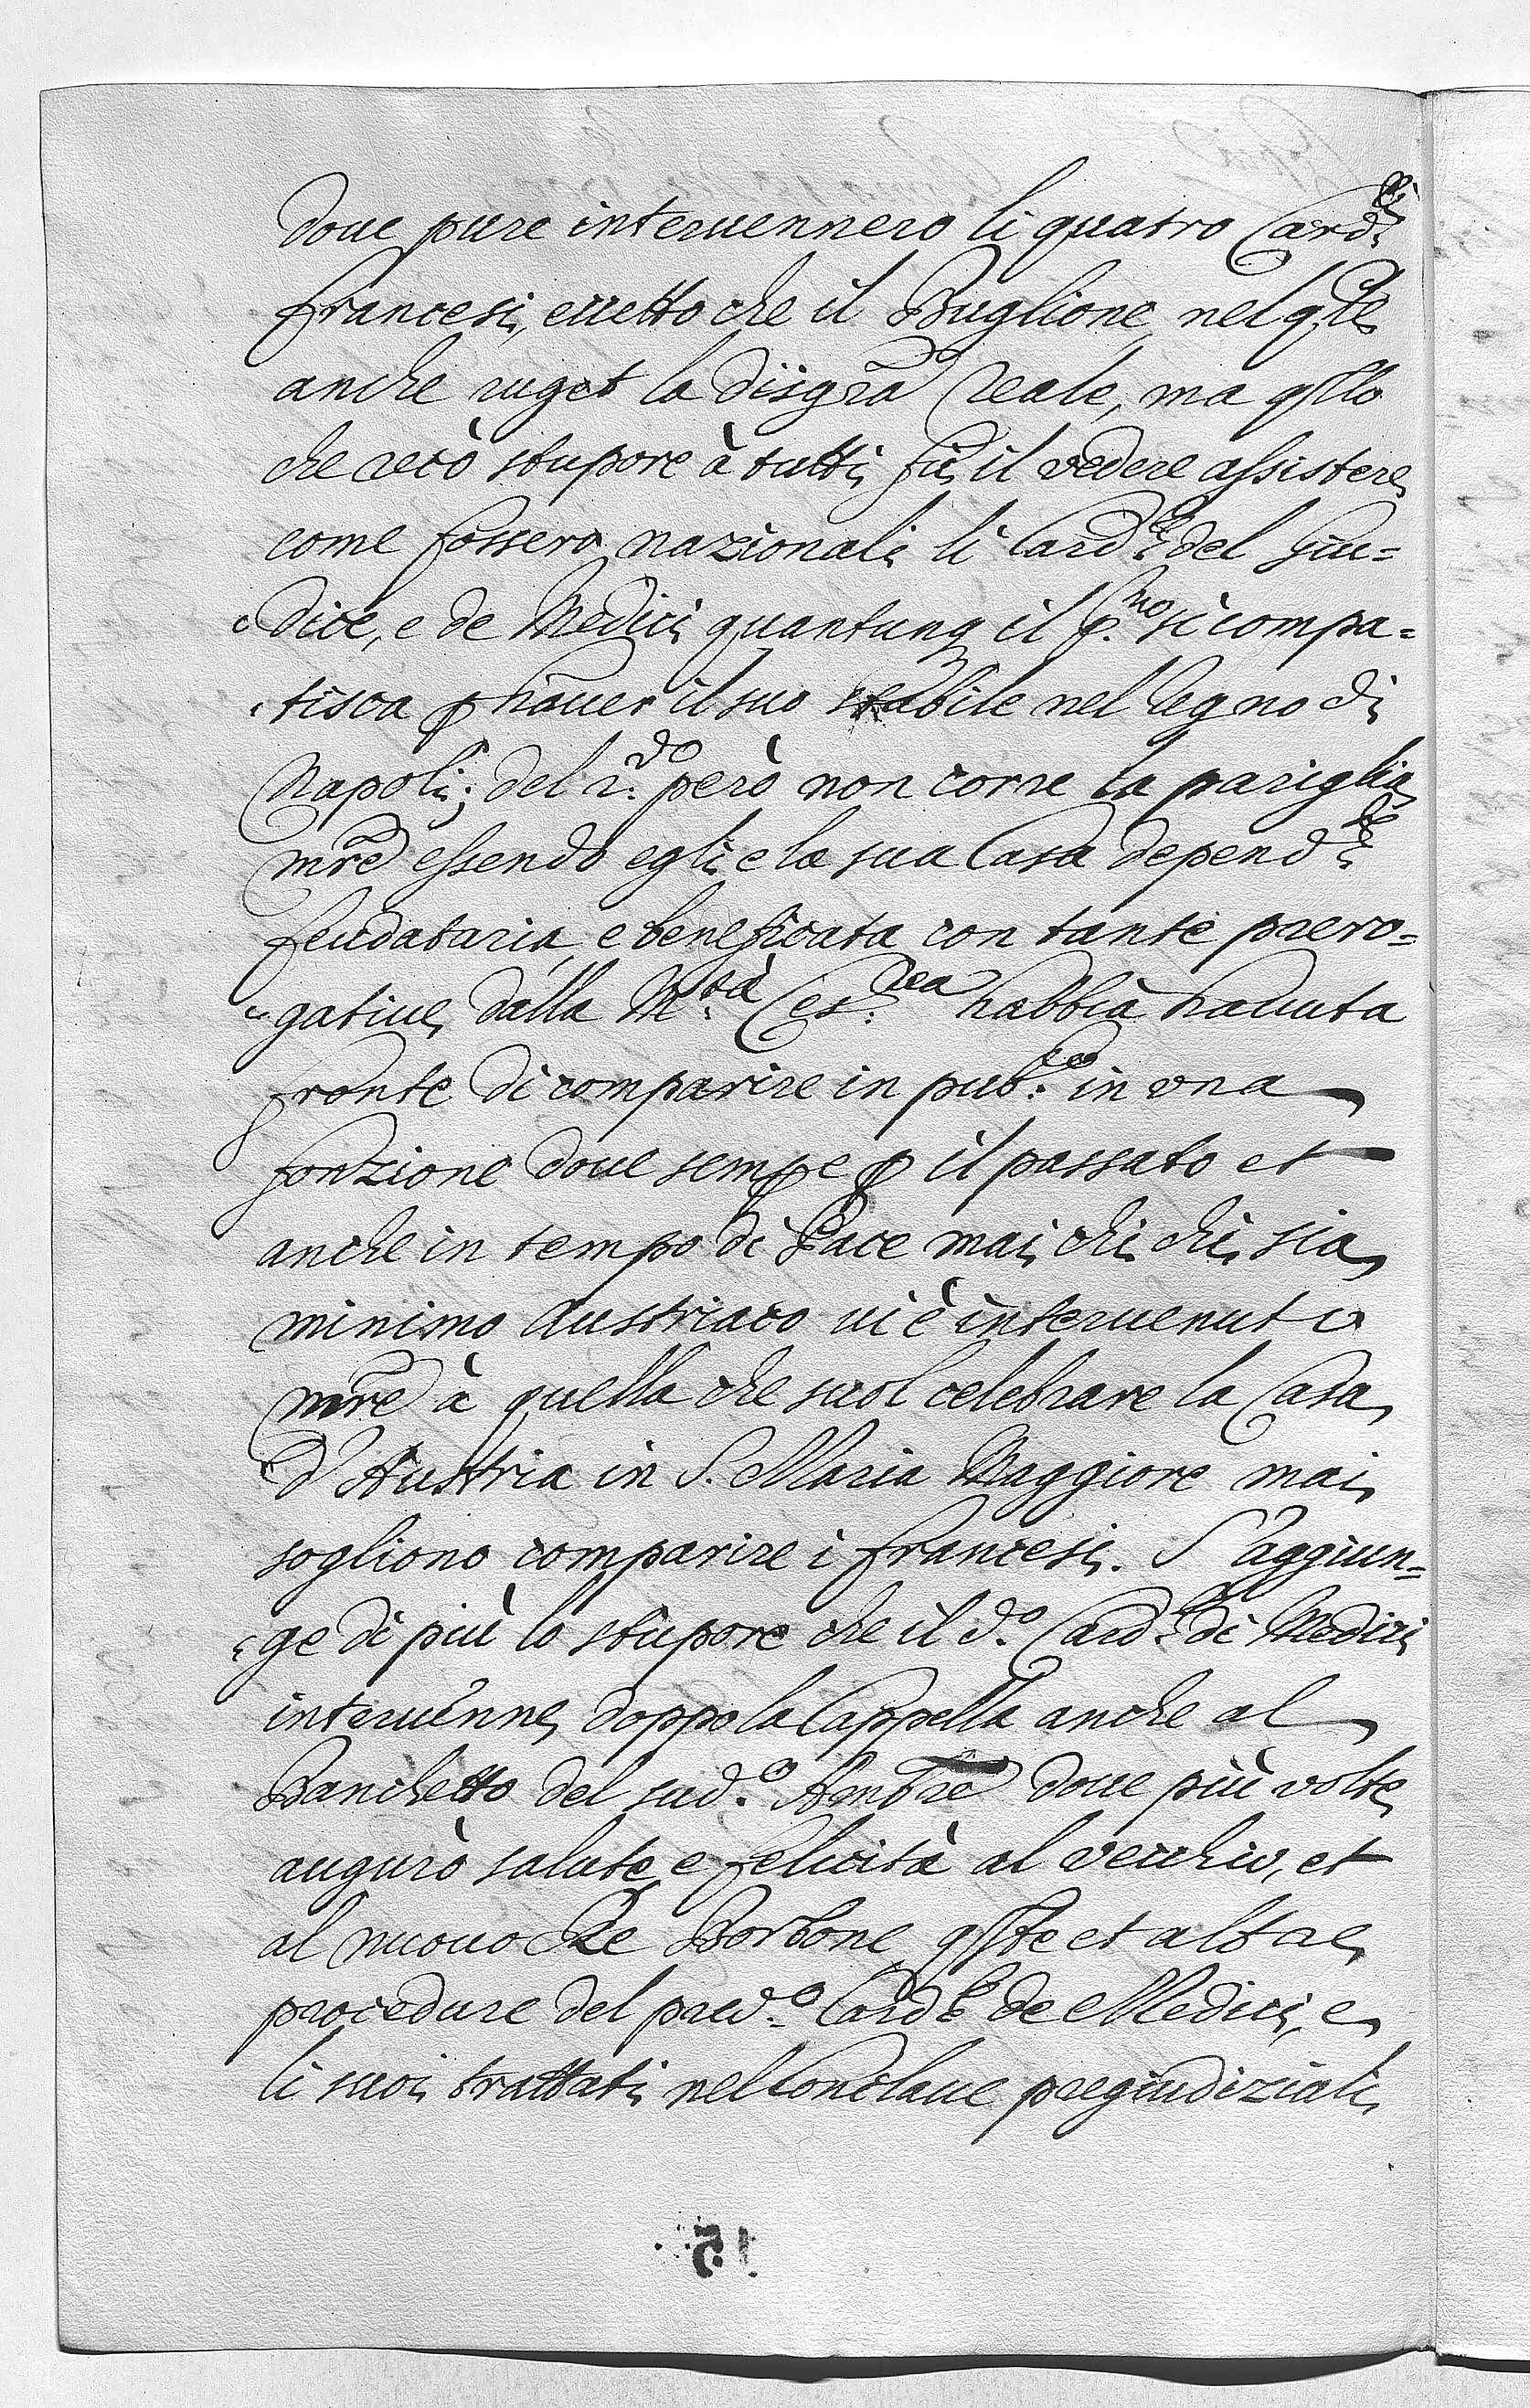 doue pure interuennero li quatro Card.li
francesi, eccetto che il Buglione, nel q.le
anche uiget la disgrã reale, ma qllo
che recò stupore à tutti, fù il vedere assistere
come fossero nazionali li Card.li del Giu=
dice, e de Medici quantunq il p.mo si compa=
tisca ꝑ hauer il suo stabile nel Regno di
Napoli; del 2.do però non corre la pariglia,
mẽe essendo egli, e la sua Casa depend.te
feudataria, e beneficata con tante prero=
gatiue, dalla M.tà Ces.rea habbia hauuta
fronte di comparire in pub.co in una
fonzione doue sempe ꝑ il passato et
anche in tempo di Pace mai, chi chi, sia,
minimo Austriaco ui è interuenuto
mẽe à quella che suol celebrare la Casa
d'Austria in S. Maria Maggiore mai,
sogliono comparire i francesi. S'aggiun=
ge di più lo stupore che il d.o Card.le di Medici
interuenne, doppo la Cappella anche al
Banchetto del sud.o Ambre doue più volte
augurò salute, e felicità al vecchio, et
al nuouo Re Borbone, qste et altre,
procedure del pred.o Card.le de Medici, e
li suoi trattati nel Conclaue pregiudiziali,
15